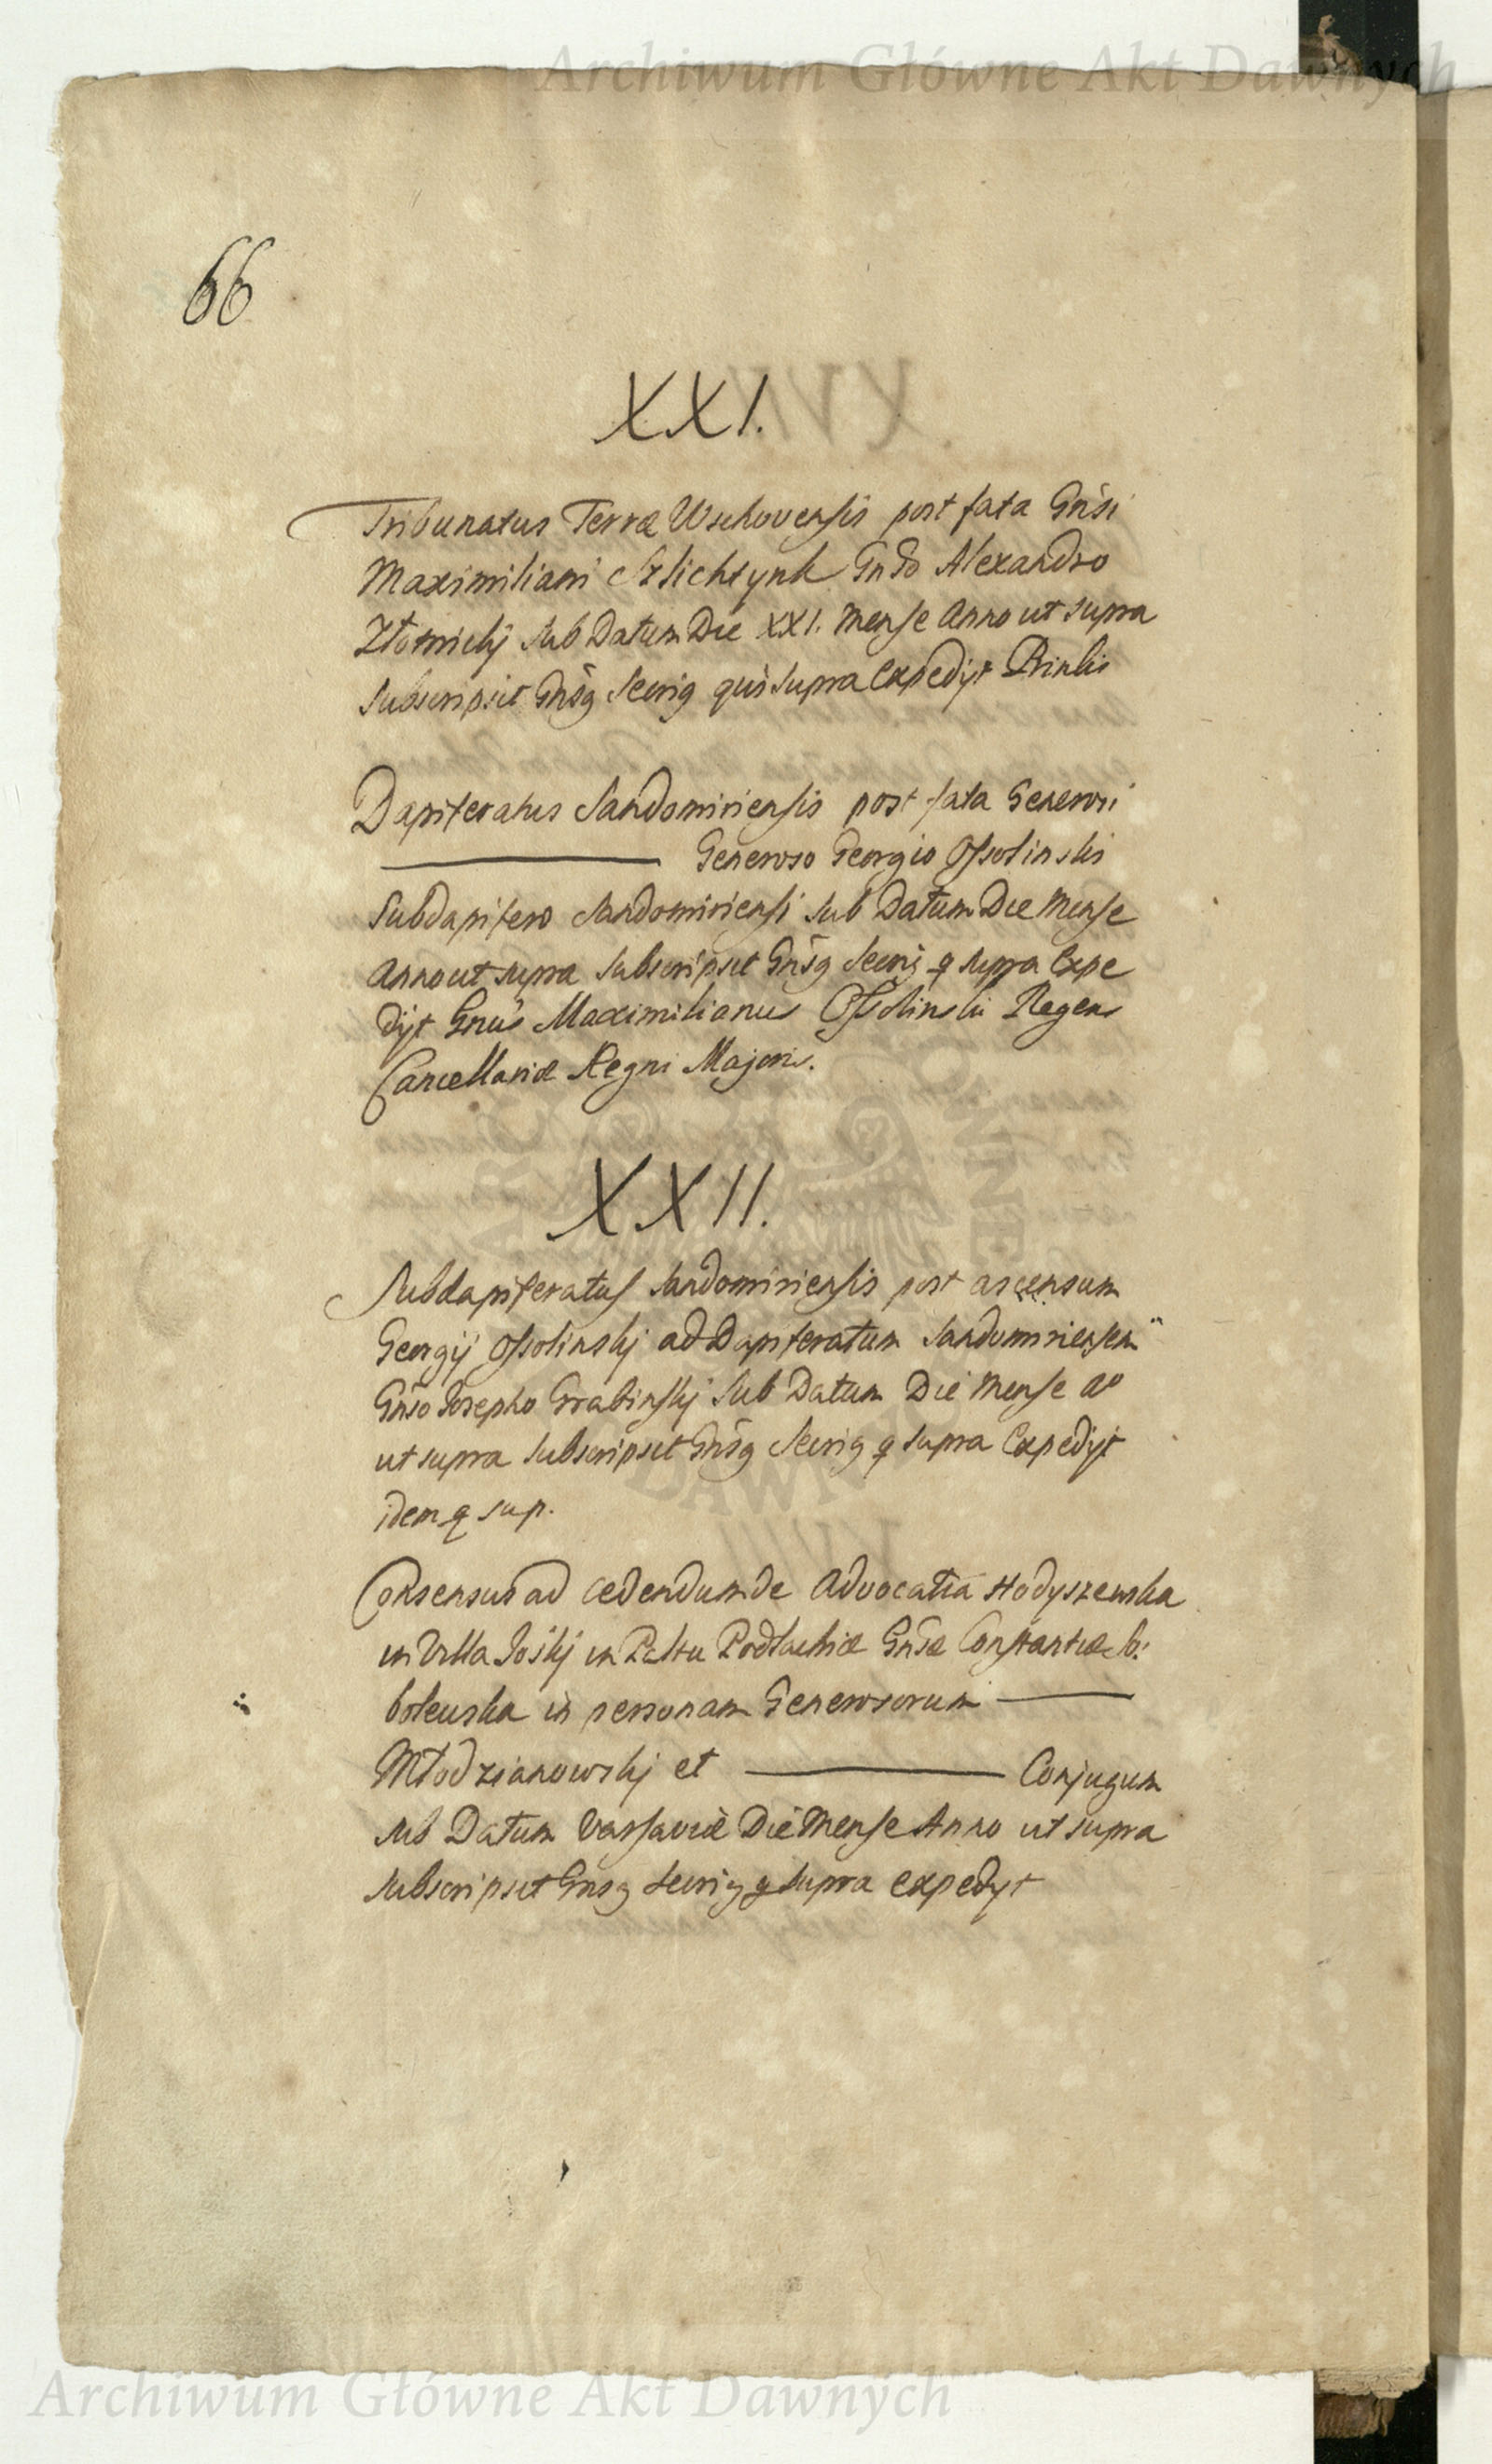 Archiwum Główne Akt Dawnych
66
XXI.
Tribunatus Terræ Wschovensis post fata Gnsi
Maximiliani Szlichtynk Gnso Alexandro
Złotnickij sub Datum Die XXI. Mense Anno ut supra
Subscripsit Gnsq Secriq qui supra Expedijt
Dapiferatus Sandomiriensis post fata Generosi
Generoso Georgio Ossolinski
Subdapifero Sandomiriensi sub Datum Die Mense
Anno ut supra subscripsit Gnsq Secriq q supra Expe
dijt Gnus Maximilianus Ossolinski Regens
Cancellariæ Regni Majoris.
XXII.
Subdapiferatus Sandomiriensis post ascensum
Georgij Ossolinskj ad Dapiferatum Sandomiriensem
Gnso Josepho Grabinskj Sub Datum Die Mense Ao
ut supra subscripsit Gnsq Secriq q supra Expedijt
idem q sup.
Consensus ad cedendum de Advocatia Hodyszewska
in Villa in Podlachiæ Gnsæ Constantiæ
in personam Generosorum
Młodzianowskj et Conjugum
sub Datum Varsaviæ Die Mense Anno ut supra
subscripsit Gnsq Secriq q supra expedyt
Archiwum Główne Akt Dawnych